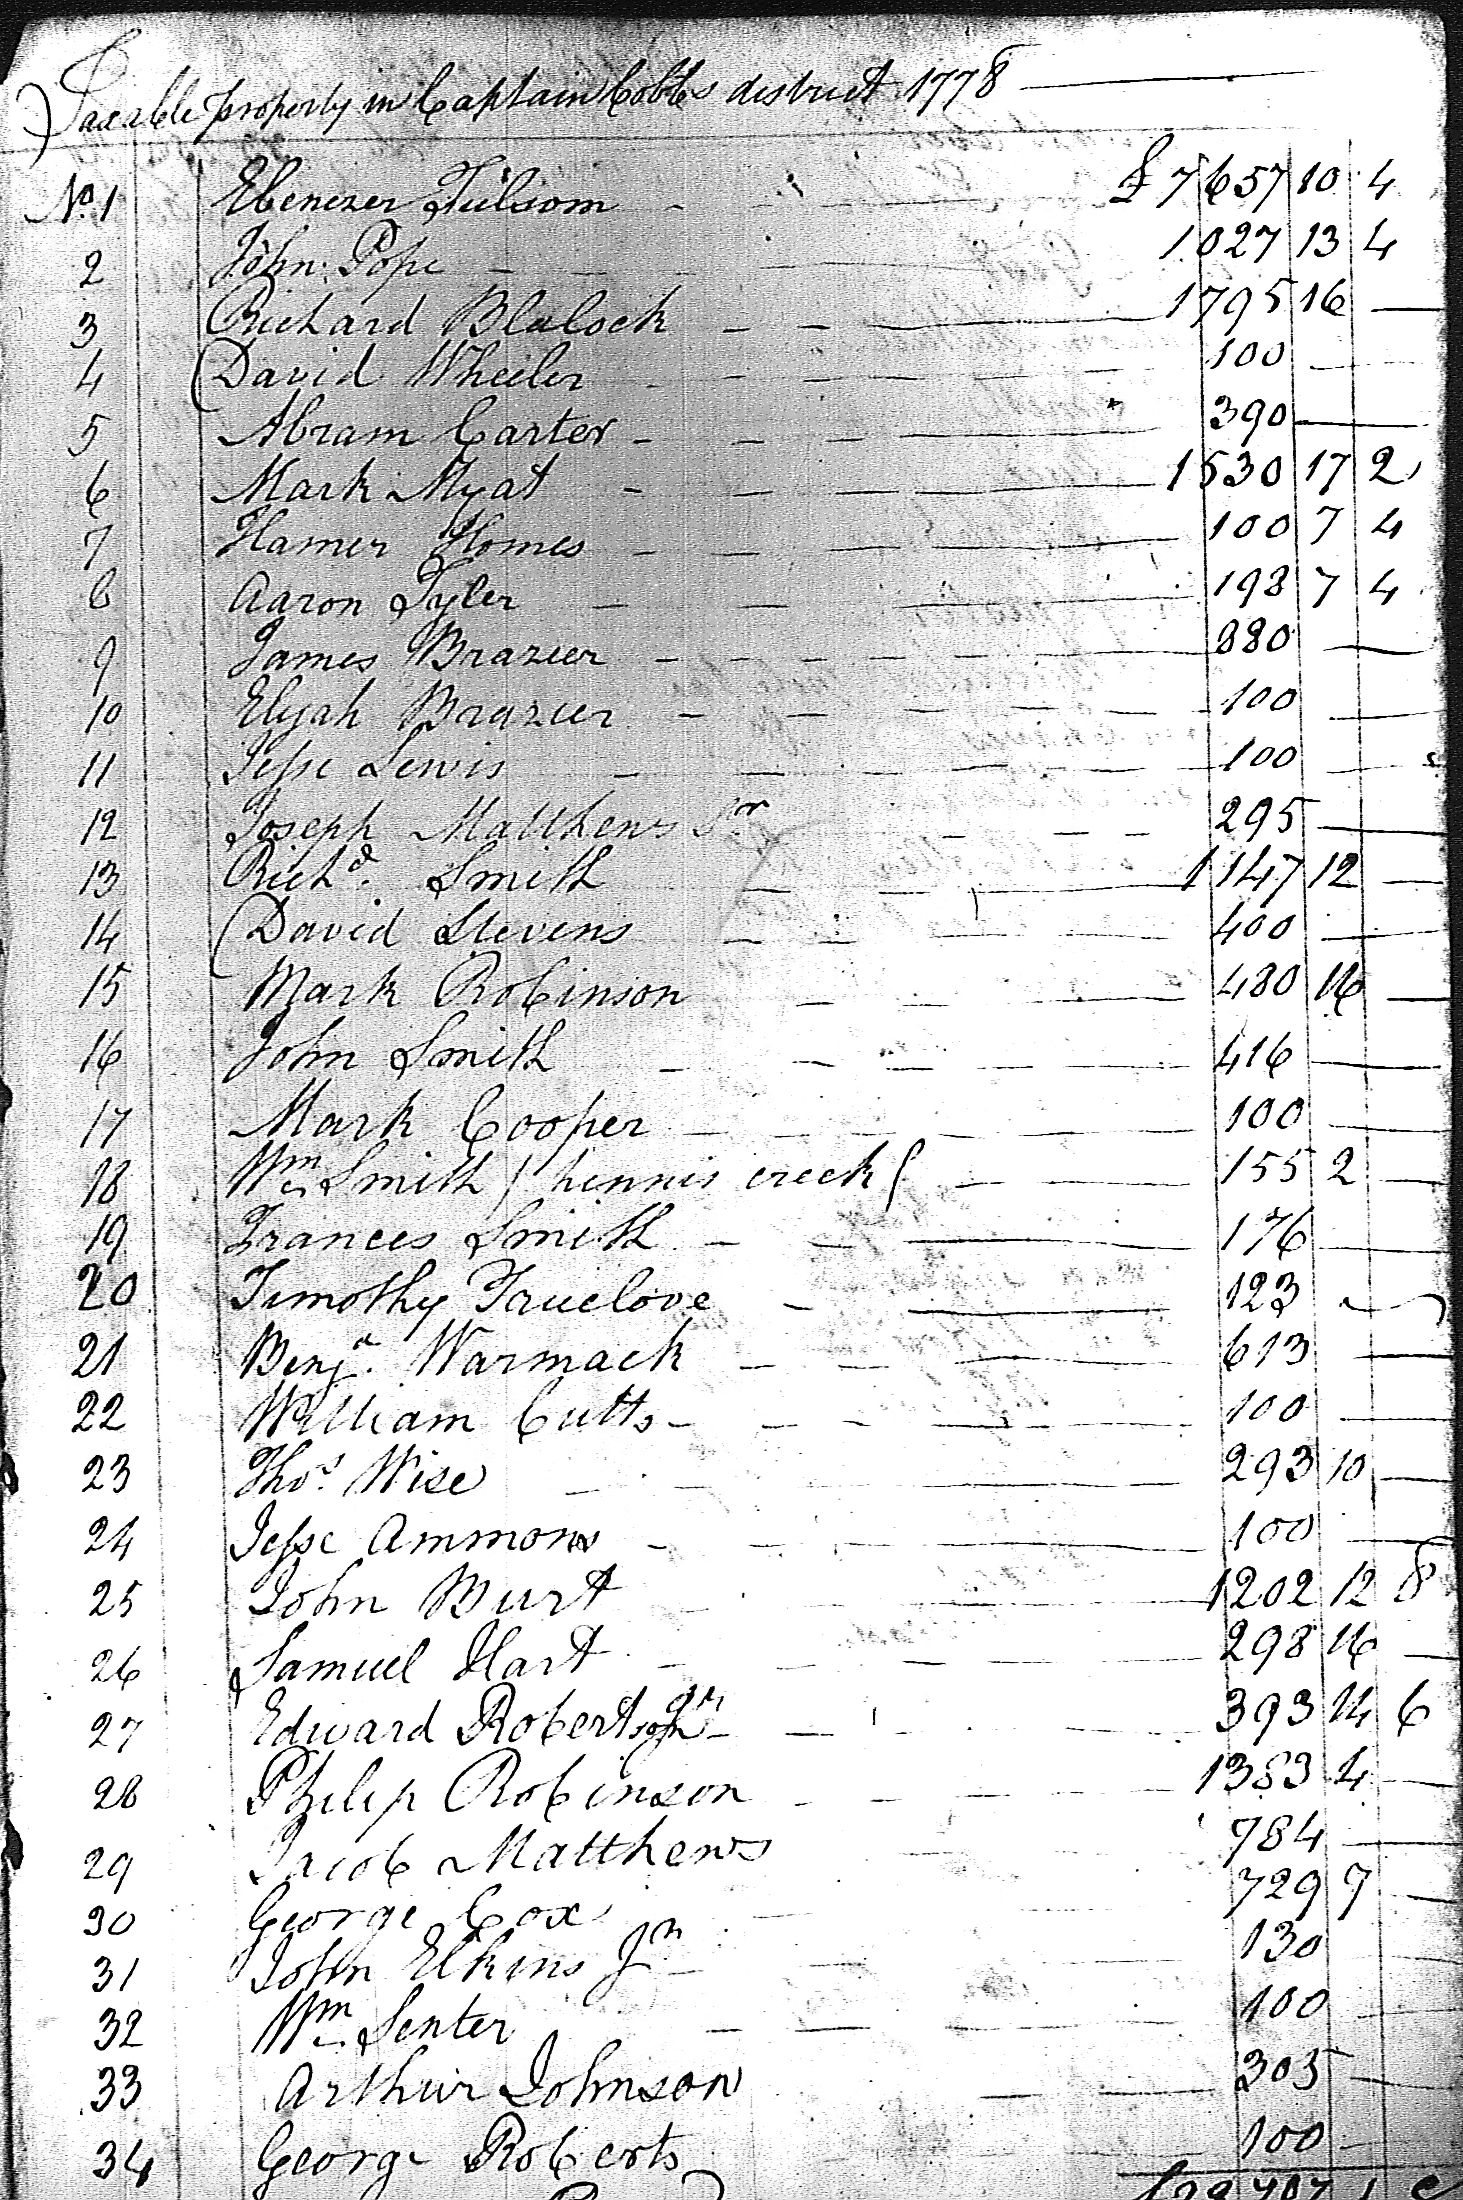 Taxable property in Captain Cobbs district 1778
No. 1 Ebenezer Fulsom £ 7657 10 4
2 John Pope 1027 13 4
3 Richard Blalock 1795 16 —
4 David Wheeler 100 —
5 Abram Carter 390 —
6 Mark Myat 1530 17 2
7 Hamer Homes 100 7 4
8 Aaron Tyler 198 7 4
9 James Brazier 880 —
10 Elijah Brazier 100 —
11 Jesse Lewis 100 —
12 Joseph Matthews Sr 295 —
13 Richd. Smith 1147 12 —
14 David Stevens 400 —
15 Mark Robinson 480 16 —
16 John Smith 416 —
17 Mark Cooper 100 —
18 Wm Smith ( hennis creek ) 155 2 —
19 Frances Smith 176 —
20 Timothy Truelove 123 —
21 Benja. Warmack 613 —
22 William Cutts 100 —
23 Thos. Wise 293 10 —
24 Jesse Ammons 100 —
25 John Burt 1202 12 8
26 Samuel Hart 298 16 —
27 Edward Robertson Jr 393 14 6
28 Philip Robinson 1383 4 —
29 Jacob Matthews 784 —
30 George Cox 729 7 —
31 John Elkins Jr 130
32 Wm Senter 100 —
33 Arthur Johnson 305 —
34 George Roberts 100 —